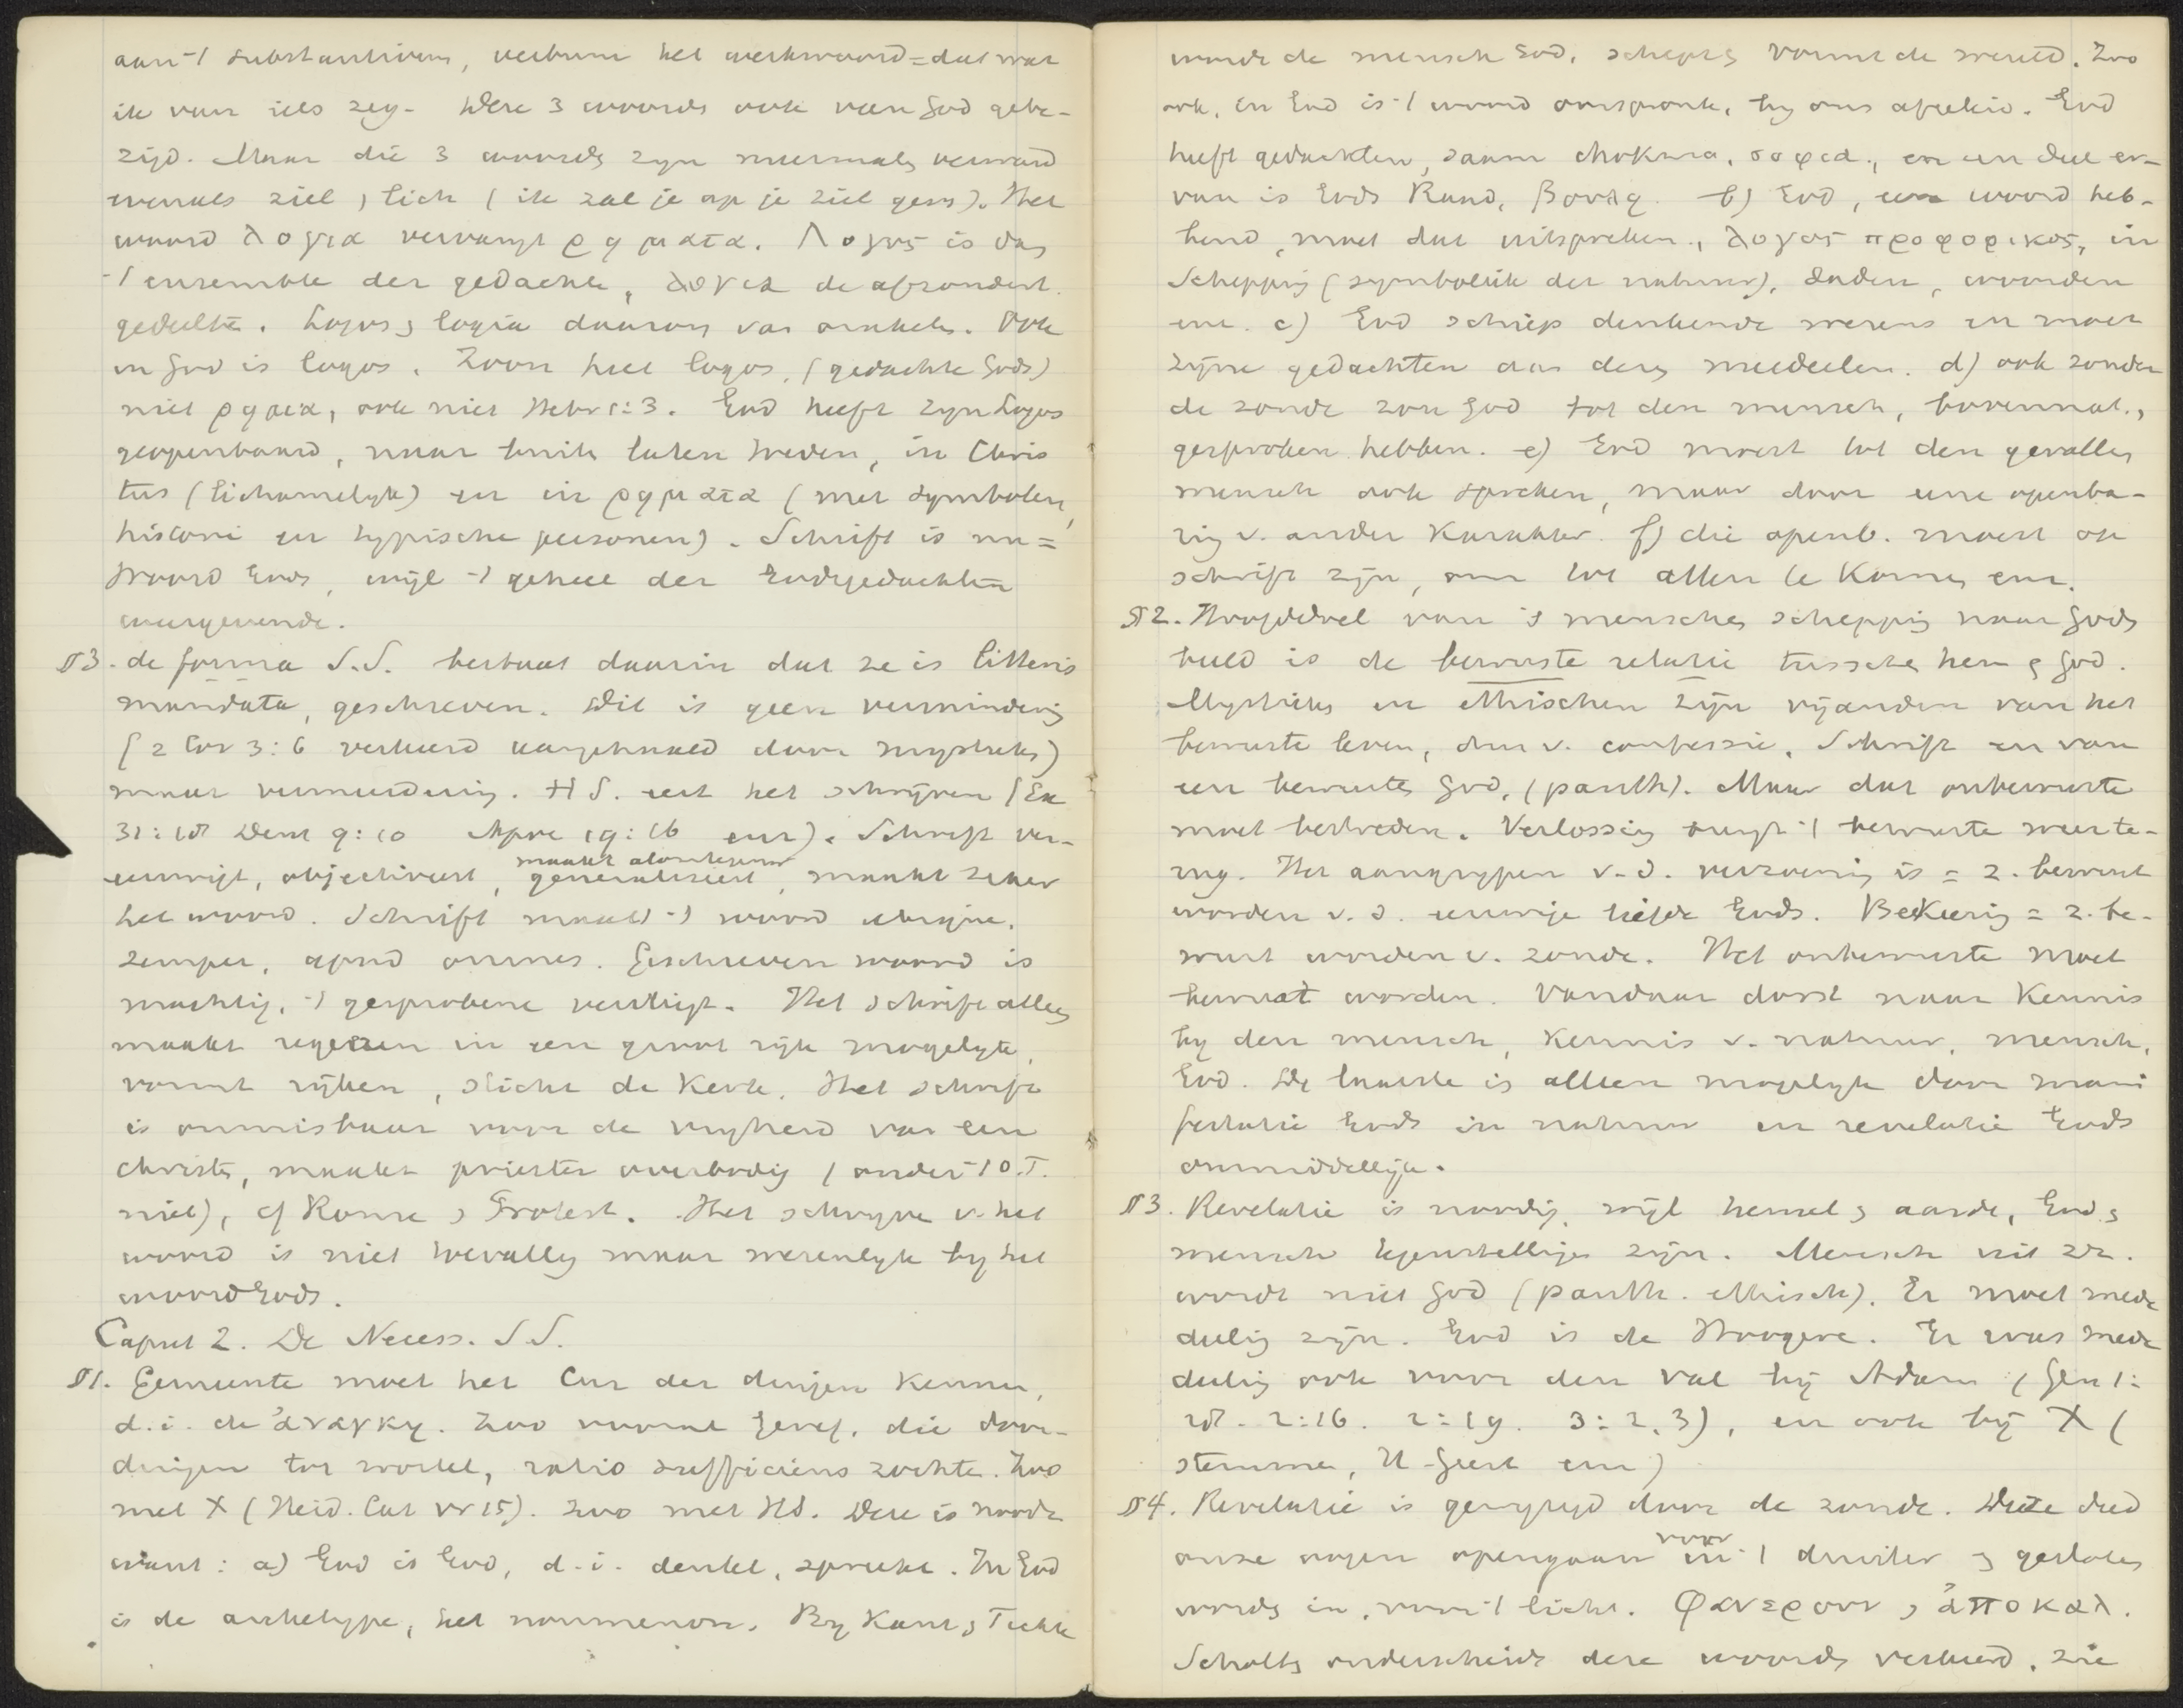 aan -/ substantivum, verbum het werkwoord = dat wat
ik van iets zeg. Deze 3 woords ook van God gebe-
zigd. Maar die 3 woords zyn meermals verward
evenals ziel, lich (ik zal je op je ziel geven). Het
woord λογια vervangt ρηματα. Λογος is das
-/ ensemble der gedachte, λογια de afzonderl.
gedeelte. Logos, logia daarom van orakels. Ook
in God is logos. Zoon heet logos, (gedachte Gods)
niet ρημα, ook niet Hebr 1:3. God heeft zyn Logos
geopenbaard, naar buite laten treden, in Chris
tus (lichamelyk) en in ρηματα (met symbolen,
historie en typische personen). Schrift is nu =
Woord Gods, wyl -/ geheel der Godsgedachten
weergevende.
§3. de forma S.S. bestaat daarin dat ze is litteris
mandata, geschreven. Dit is geen vermindering
(2 Cor 3:6 verkeerd aangehaald door mystieks)
maar vermeerdering. H S. eert het schrijven (Ex
31:18 Deut 9:10 Apoc 19:16 enz). Schrift ver-
eeuwigt, objectiveert, generaliseert, maakt zeker
het woord. Schrift maakt -/ woord ubique,
semper, apud omnes. Geschreven woord is
machtig, -/ gesprokene vervliegt. Het schrift alleen
maakt regeeren in een groot rijk mogelyk,
vormt rijken, sticht de Kerk. Het schrift
is onmisbaar voor de vryheid van een
christen, maakt priester overbodig (onder -/ O.T.
niet), cf Rome, Protest. Het schryve v. het
woord is niet toevallig maar wezenlyk by het
woord Gods.
Caput 2. De Necess. S.S.
§1. Gemeente moet het Cur der dingen kennen,
d.i. de ἀναγκη. Zoo vooral Geref. die door-
dringen tot wortel, ratio sufficiens zochte. Zoo
met X (Heid. Cat vr 15). Zoo met HS. Deze is noodz
want: a) God is God, d.i. denkt, spreekt. In God
is de archetype, het noumenon. By Kant, Fichte
wordt de mensch God, schept, vormt de wereld. Zoo
ook, in God is -/ woord oorspronk., by ons afgeleid. God
heeft gedachten, saam chokma, σοφια, en een deel er-
van is Gods Raad, βουλη. b) God, een woord heb-
bend, moet dat uitspreken, λογος προφορικος, in
Schepping (symboliek der natuur), daden, woorden
enz. c) God schiep denkende wezens en moet
zijne gedachten aan deze meedeelen. d) ook zonder
de zonde zou God tot den mensch, bovennat.,
gesproken hebben. e) God moest tot den gevallen
mensch ook spreken, maar door eene openba-
ring v. ander Karakter. f) die openb. moest op
schrift zijn, om tot allen te komen enz.
§2. Hoofddoel van 's menschen schepping naar Gods
beeld is de bewuste relatie tusschen hem & God.
Mystieks en ethischen zijn vijanden van het
bewuste leven, dus v. confessie, Schrift en van
een bewuste God, (panth). Maar dat onbewuste
moet bestreden. Verlossing brengt -/ bewuste weer te-
rug. Het aangrypen v.d. verzoening is = z. bewust
worden v. d. eeuwige liefde Gods. Bekeering = z. be-
wust worden v. zonde. Het onbewuste moet
bewust worden. Vandaar dorst naar Kennis
by den mensch, Kennis v. natuur, mensch,
God. De laatste is alleen mogelyk door mani
festatie Gods in natuur en revelatie Gods
onmiddellijk.
§3. Revelatie is noodig, wijl hemel & aarde, God &
mensch tegenstellingen zijn. Mensch uit zz.
wordt niet God (panth. ethisch). Er moet mede
deeling zijn. God is de Hoogere. Er was mede
deeling ook voor den val bij Adam (Gen 1:
28. 2:16. 2:19. 3:2,3), en ook bij X (
stemme, H Geest enz)
§4. Revelatie is gewyzigd door de zonde. Deze deed
onze oogen opengaan voor -/ duister & gesloten
words in, voor -/ licht. Φανερουν, ἀποκαλ.
Scholten onderscheidt deze woords verkeerd. Zie